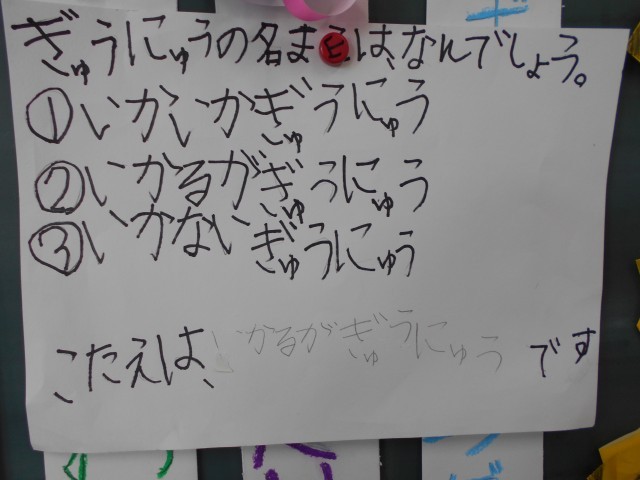 ぎゅうにゅうの名まえは、なんでしょう。
①いかいかぎゅうにゅう
②いかるがぎゅうにゅう
③いかないぎゅうにゅう
こたえは、いかるがぎゅうにゅうです